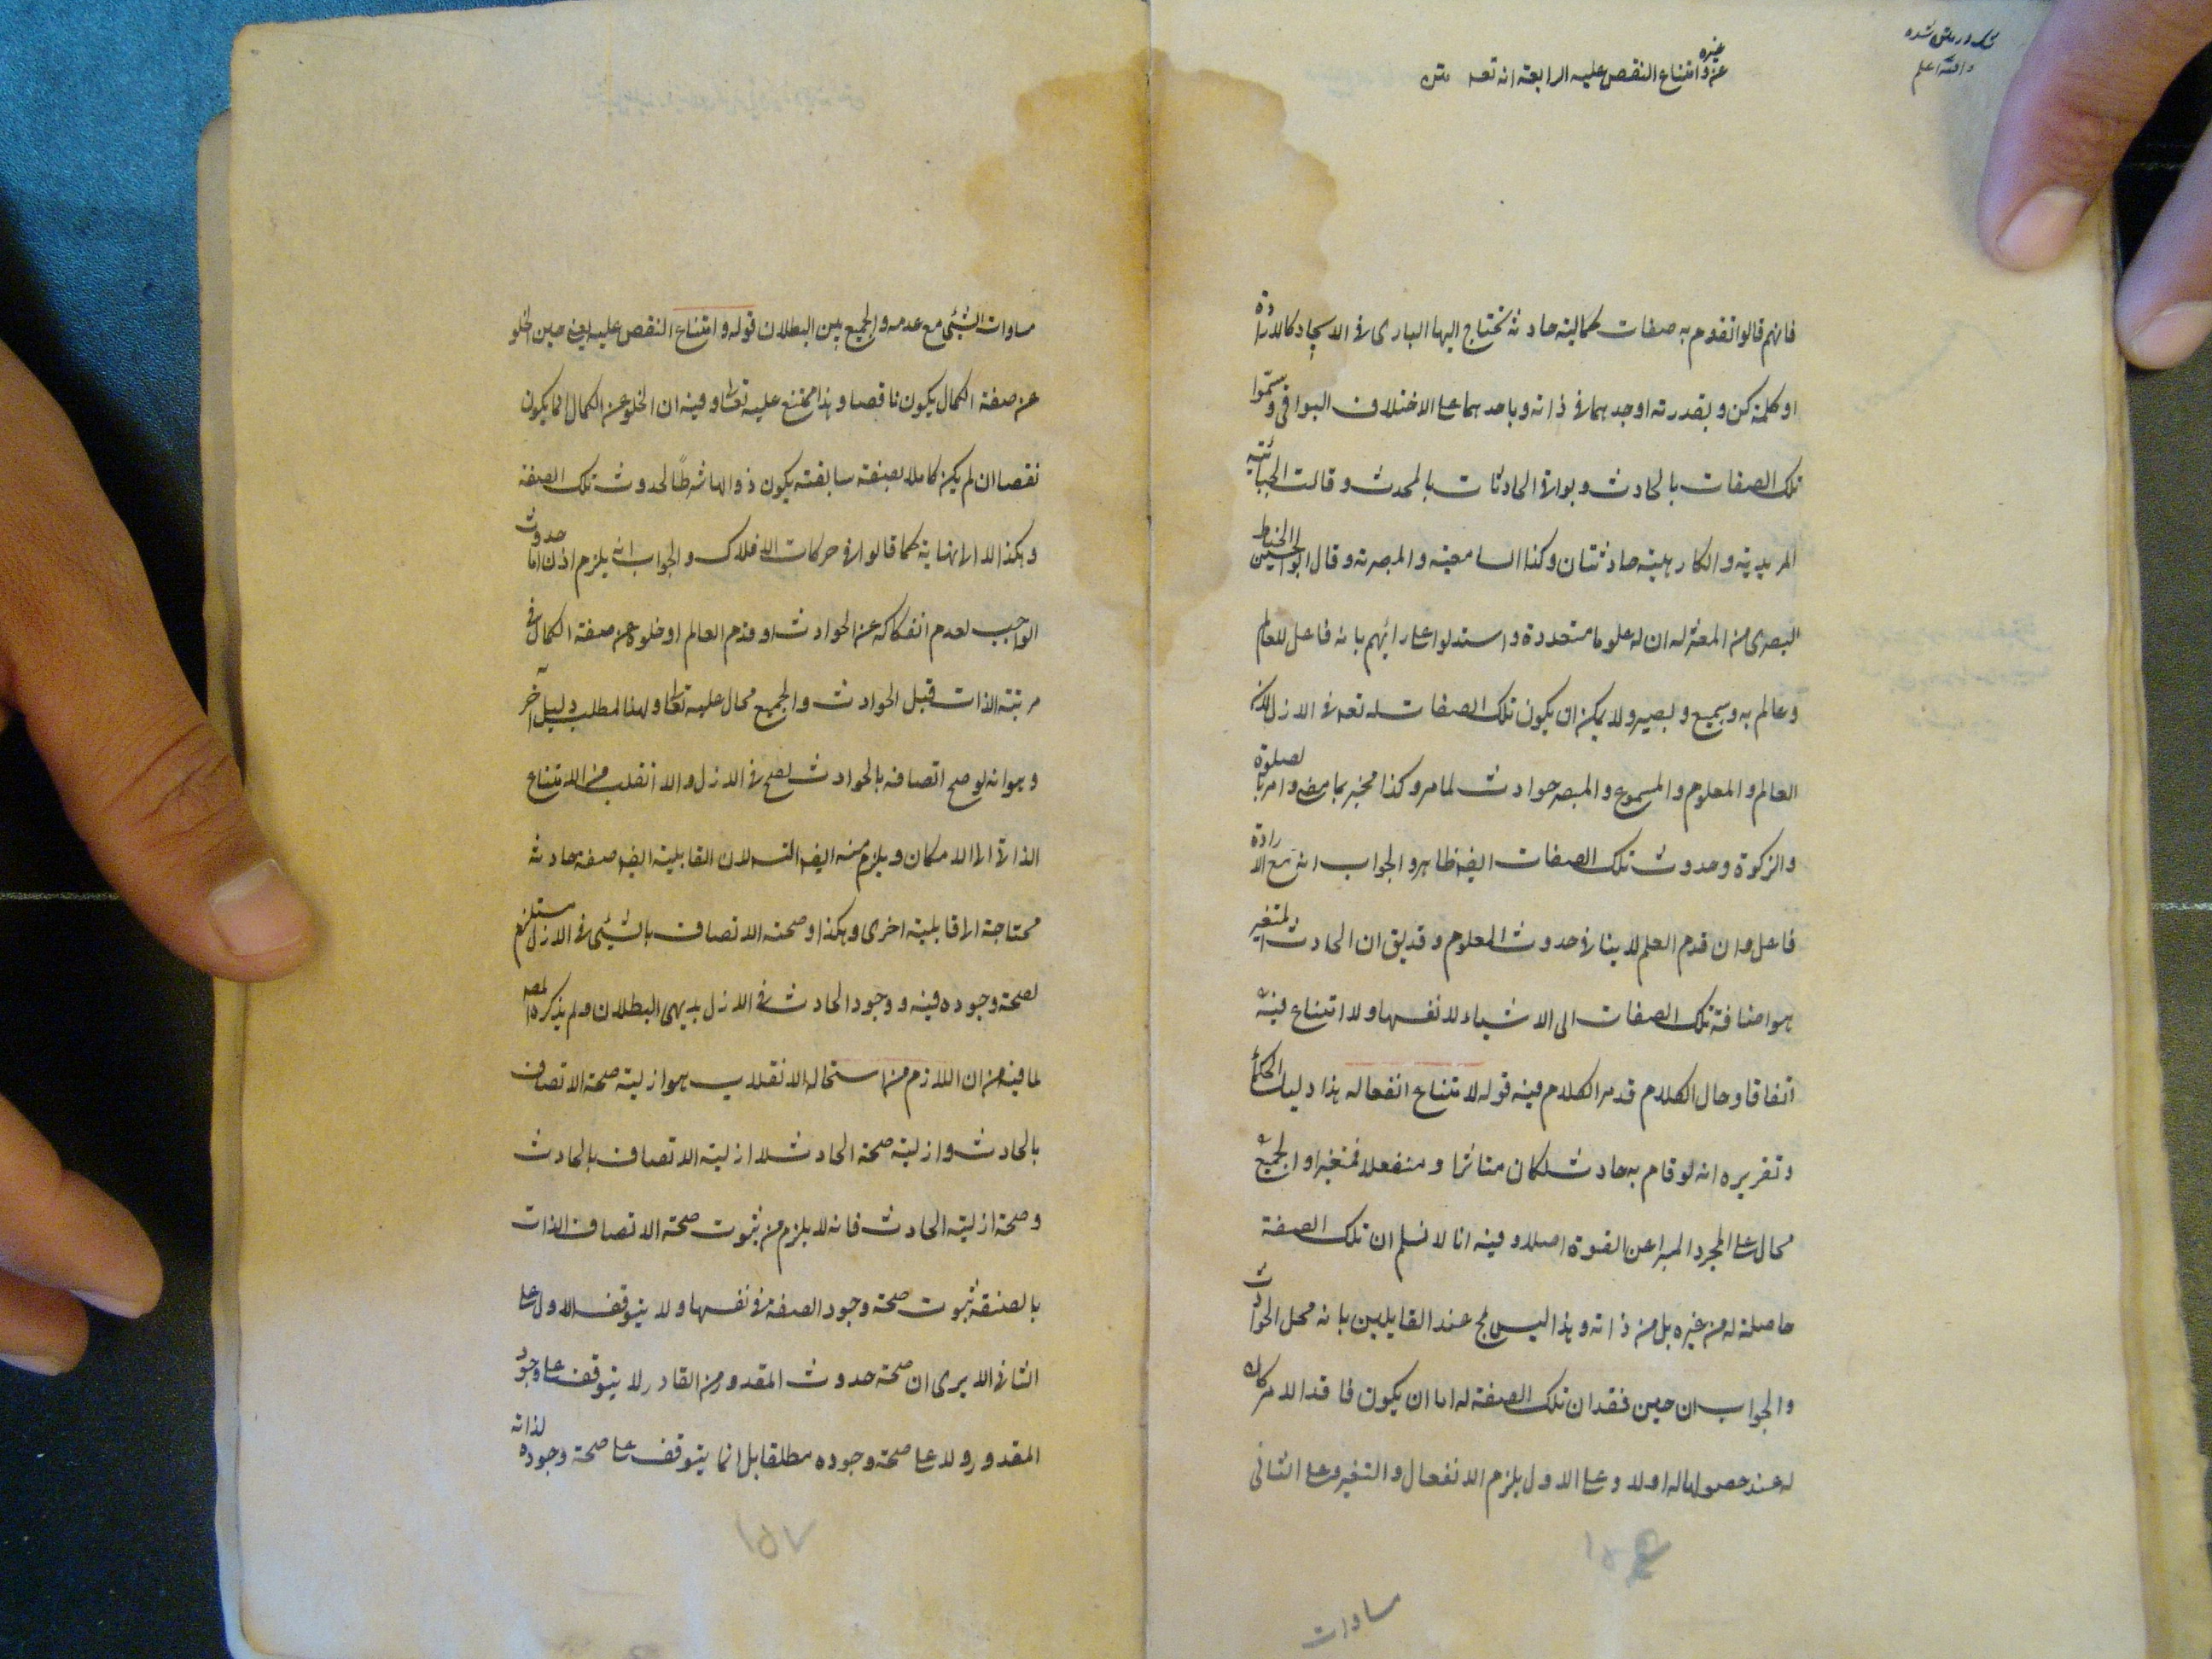 عن غيره و امتناع النقص عليه الرابعة انه تعم متن
والله اعلم
فانهم قالوا تقوم به صفات كمالية حادثة تحتاج اليها الباري في الايجاد كالارادة
او كلمة كن و بقدرته اوجدهما في ذاته وباحدهما على الاختلاف البواقي و سموا
تلك الصفات بالحادث وبواقي الحادثات بالمحدث وقالت الجبائية
المريدية والكارهية حادثتان وكذا السامعية والمبصرية وقال ابو الحسين الخياط
البصرى من المعتزله ان له علوما متجددة واستدلوا على رائهم بانه فاعل للعالم
وعالم به وسميع وبصير ولا يمكن ان يكون تلك الصفات له تعم في الازل لان
العالم والمعلوم والمسموع والمبصر حوادث لما مر وكذا مخبر بما مضى وامر بالصلوة
والزكوة وحدوث تلك الصفات ايضه ظاهر والجواب انه مع الارادة
فاعل وان قدم العلم لا ينافي حدوث المعلوم وقد يق ان الحادث المتغير
هو اضافة تلك الصفات الى الاشياء لا نفسها ولا امتناع فيه
اتفاقا وحال الكلام قد مر الكلام فيه قوله لامتناع انفعاله هذا دليل الحكماء
وتقريره انه لو قام به حادث لكان متاثرا و منفعلا فمتغيرا و الجميع
محال على المجرد المبرا عن القوة اصلا وفيه انا لا نسلم ان تلك الصفة
حاصلة له من غيره بل من ذاته وهذا ليس بمح عند القايلين بانه محل الحوادث
والجواب ان حين فقدان تلك الصفة له اما ان يكون فاقدا لامر كان
له عند حصولها له اولا وعلى الاول يلزم الانفعال والتغير وعلى الثاني
مساوات
مساوات الشئ مع عدمه والجميع بين البطلان قوله و امتناع النقص عليه يعني حين الخلو
عن صفة الكمال يكون ناقصا وهذا ممتنع عليه تعالى وفيه ان الخلو عن الكمال انما يكون
نقصا ان لم يكن كاملا بصفة سابقة يكون زوالها شرطا لحدوث تلك الصفة
وهكذا الا لا نهاية كما قالوا في حركات الافلاك والجواب انه يلزم اذن اما حدوث
الواجب لعدم انفكاكه عن الحوادث او قدم العالم او خلوه عن صفة الكمال في
مرتبة الذات قبل الحوادث والجميع محال عليه تعالى ولهذا لمطلب دليل آخر
وهو انه لو صح اتصافه بالحوادث لصح في الازل والا انقلب من الامتناع
الذاتي الى الامكان ويلزم منه ايضه التسه لان القابلية ايضه صفة حادثة
محتاجة الى قابلية اخرى وهكذا وصحة الاتصاف بالشئ في الازل مستلزم
لصحة وجوده فيه ووجود الحادث في الازل بديهى البطلان ولم يذكره المصه
لما فيه من ان اللازم من استحاله الانقلاب هو ازلية صحة الاتصاف
بالحادث و ازلية صحة الحادث لا ازلية الاتصاف بالحادث
وصحة ازلية الحادث فانه لا يلزم من ثبوت صحة الاتصاف الذات
بالصفة ثبوت صحة وجود الصفة في نفسها ولا يتوقف الاول على
الثاني الا يرى ان صحة حدوث المقدور من القادر لا يتوقف على وجود
المقدور ولا على صحة وجوده مطلقا بل انما يتوقف على صحة وجوده لذاته